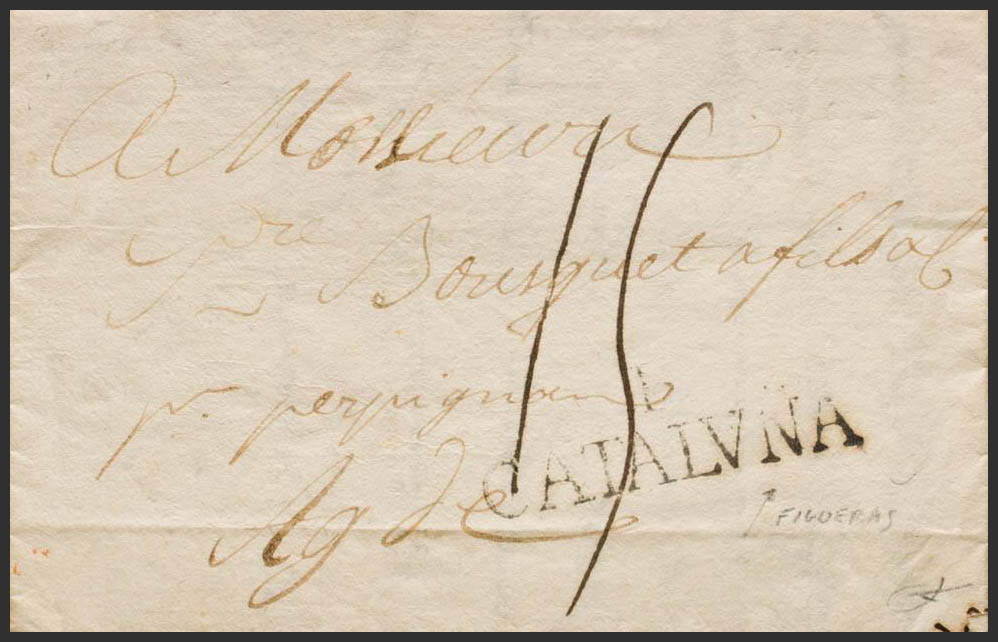 A Monsieur
pre Bousquet a fils ol
pr. perpignan
15
L
CATALUÑA
Agde
FIGUERAS